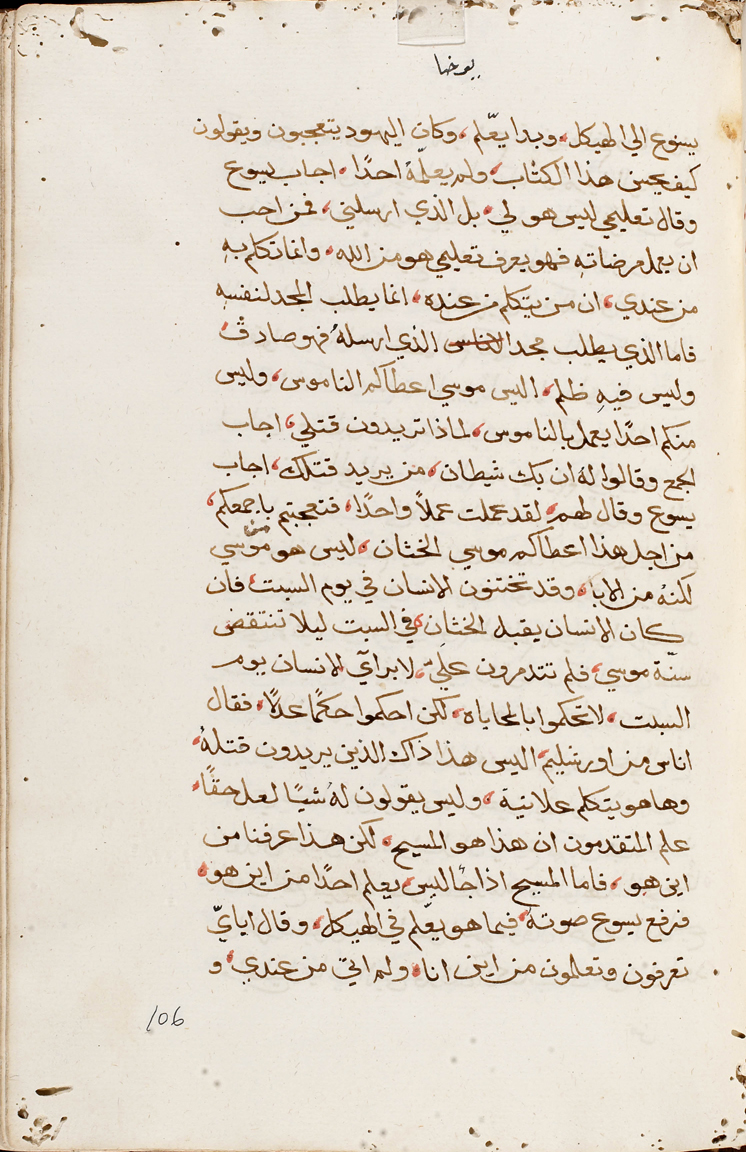 يوحنا
يسوع الي الهيكل، وبدا يعّلم، وكان اليهود يتعجبون ويقولون
كيف يحسن هذا الكتاب، ولم يعلّمهُ احدًا، اجاب يسوع
وقال تعليمي ليس هو لي، بل الذي ارسلني، فمن احب
ان يعمل مرضاته فهو يعرف تعليمي هو من الله، وانما تكلم به
من عندي، ان من يتكلم من عنده، انما يطلب المجد لنفسهِ
فاما الذي يطلب مجد الذي ارسلهُ فهو صادقٌ،
وليس فيهِ ظلم، اليس موسي اعطاكم الناموس، وليس
منكم احدًا يعمل بالناموس، لماذا تريدون قتلي، اجاب
الجمع وقالوا لهُ ان بك شيطان، من يريد قتلك، اجاب
يسوع وقال لهم، لقد عملت عملاً واحدًا، فتعجبتم باجمعكم،
من اجل هذا اعطاكم موسي الختان، ليس هو من موسي
لكنهُ من الابا، وقد تختنون الانسان في يوم السبت، فان
كان الانسان يقبل الختان، في السبت ليلا تنتقض
سنّة موسي، فلم تتذمرون عليّ، لابراي الانسان يوم
السبت، لا تحكموا بالمحاياه، لكن احكموا حكمًا عدلًا، فقال
اناس من اورشليم، اليس هذا ذاك الذين يريدون قتلهُ،
وها هو يتكلم علانية، وليس يقولون لهُ شيًا لعل حقًا،
علم المتقدمون ان هذا هو المسيح، لكن هذا عرفنا من
اين هو، فاما المسيح اذا جا ليس، يعلم احدًا من اين هو،
فرفع يسوع صوتهُ، فيما هو يعّلم في الهيكل، وقال اياي
تعرفون وتعلمون من اين انا، ولم اتي من عندي، و
106